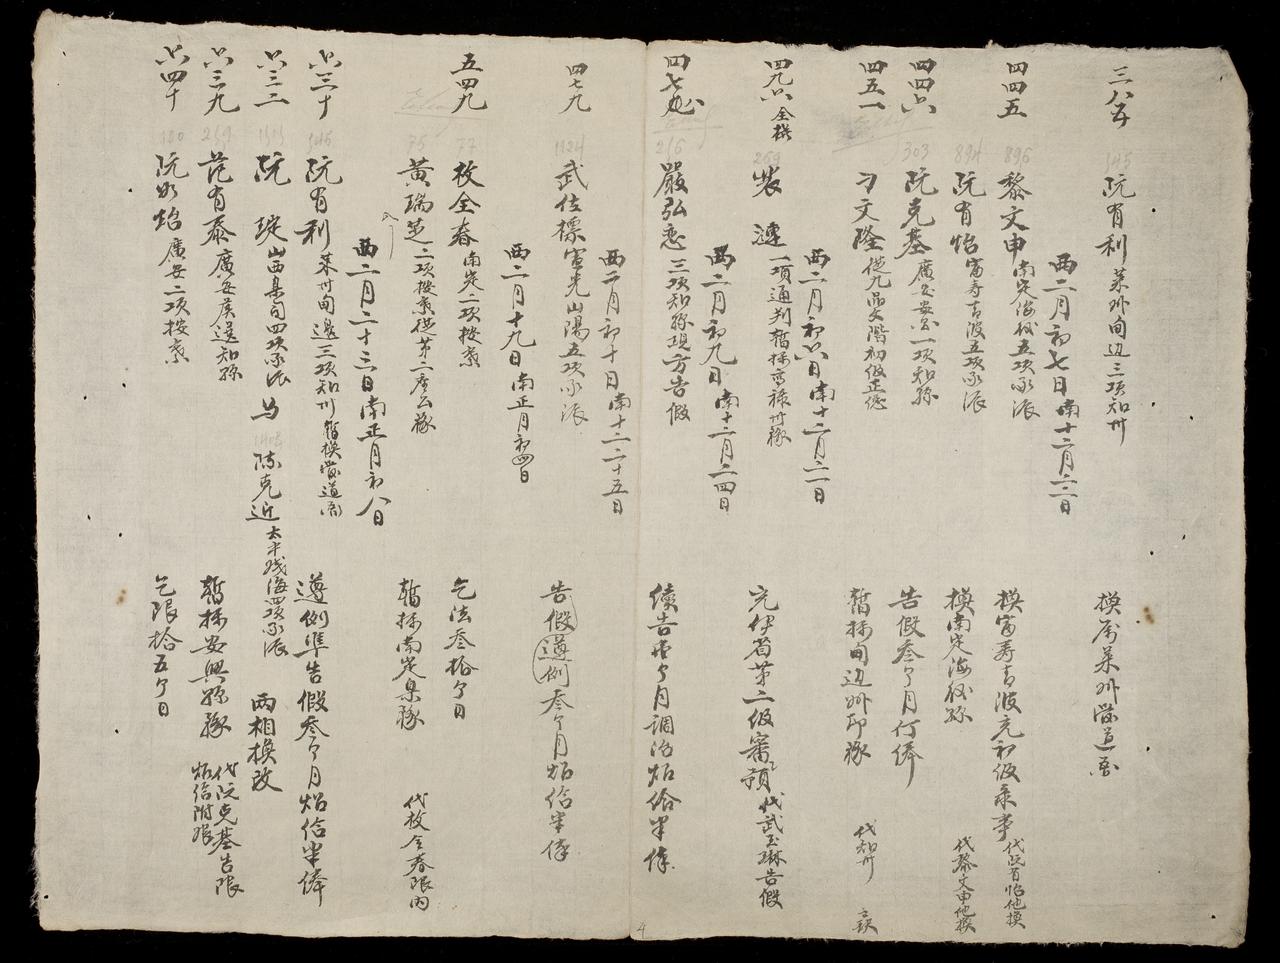 三八五 145 阮有利 萊州甸边三項知州 換南萊州營道啚
西二月初七日南十二月二二日
四四五 896 黎文申 南定海後五項承派 換富壽青波充初級彔事 代阮有怡他換
894 阮有怡 富壽青波五項承派 換南定海後縣 代黎文申他換
四四六 303 阮克基 廣安安一項知縣 告假叁个月行俸
四五一 刁文隆 從九品文階初級正總 暫攝甸边州印篆 代知州 缺
西二月初六日南十二月二一日
四九六 全換 269 裴 璉 一項通判暫攝高祿州篆 充伊省第二級審預 代武玉琳告假
西二月初九日南十二月二四日
四七 216 嚴弘 三項知縣現方告假 續告 个月調治炤給半俸
西二月初十日南十二二十五日
四七九 1124 武仕標 宣光山陽五項承派 告假遵例叁个月炤給半俸
西二月十九日南正月初四日
五四九 77 枚全春 南定二項按察 乞法叁拾个日
75 黃瑞芝 二項按察從第二 公篆 暫攝南定臬篆 代枚全春限內
西二月二十三日南正月初八日
六三十 145 阮有利 萊州甸邊三項知州 暫換營道啚 遵例準告假叁个月炤給半俸
六三二 阮 琔 山西臬司四項承派 与 陳克近 太平 海四項承派 兩相換改
六三九 269 范有泰 廣安候選知縣 暫攝安興縣篆 代阮克基告限 炤給附
六四十 180 阮如炤 廣安二項按察 乞限拾五个日
4